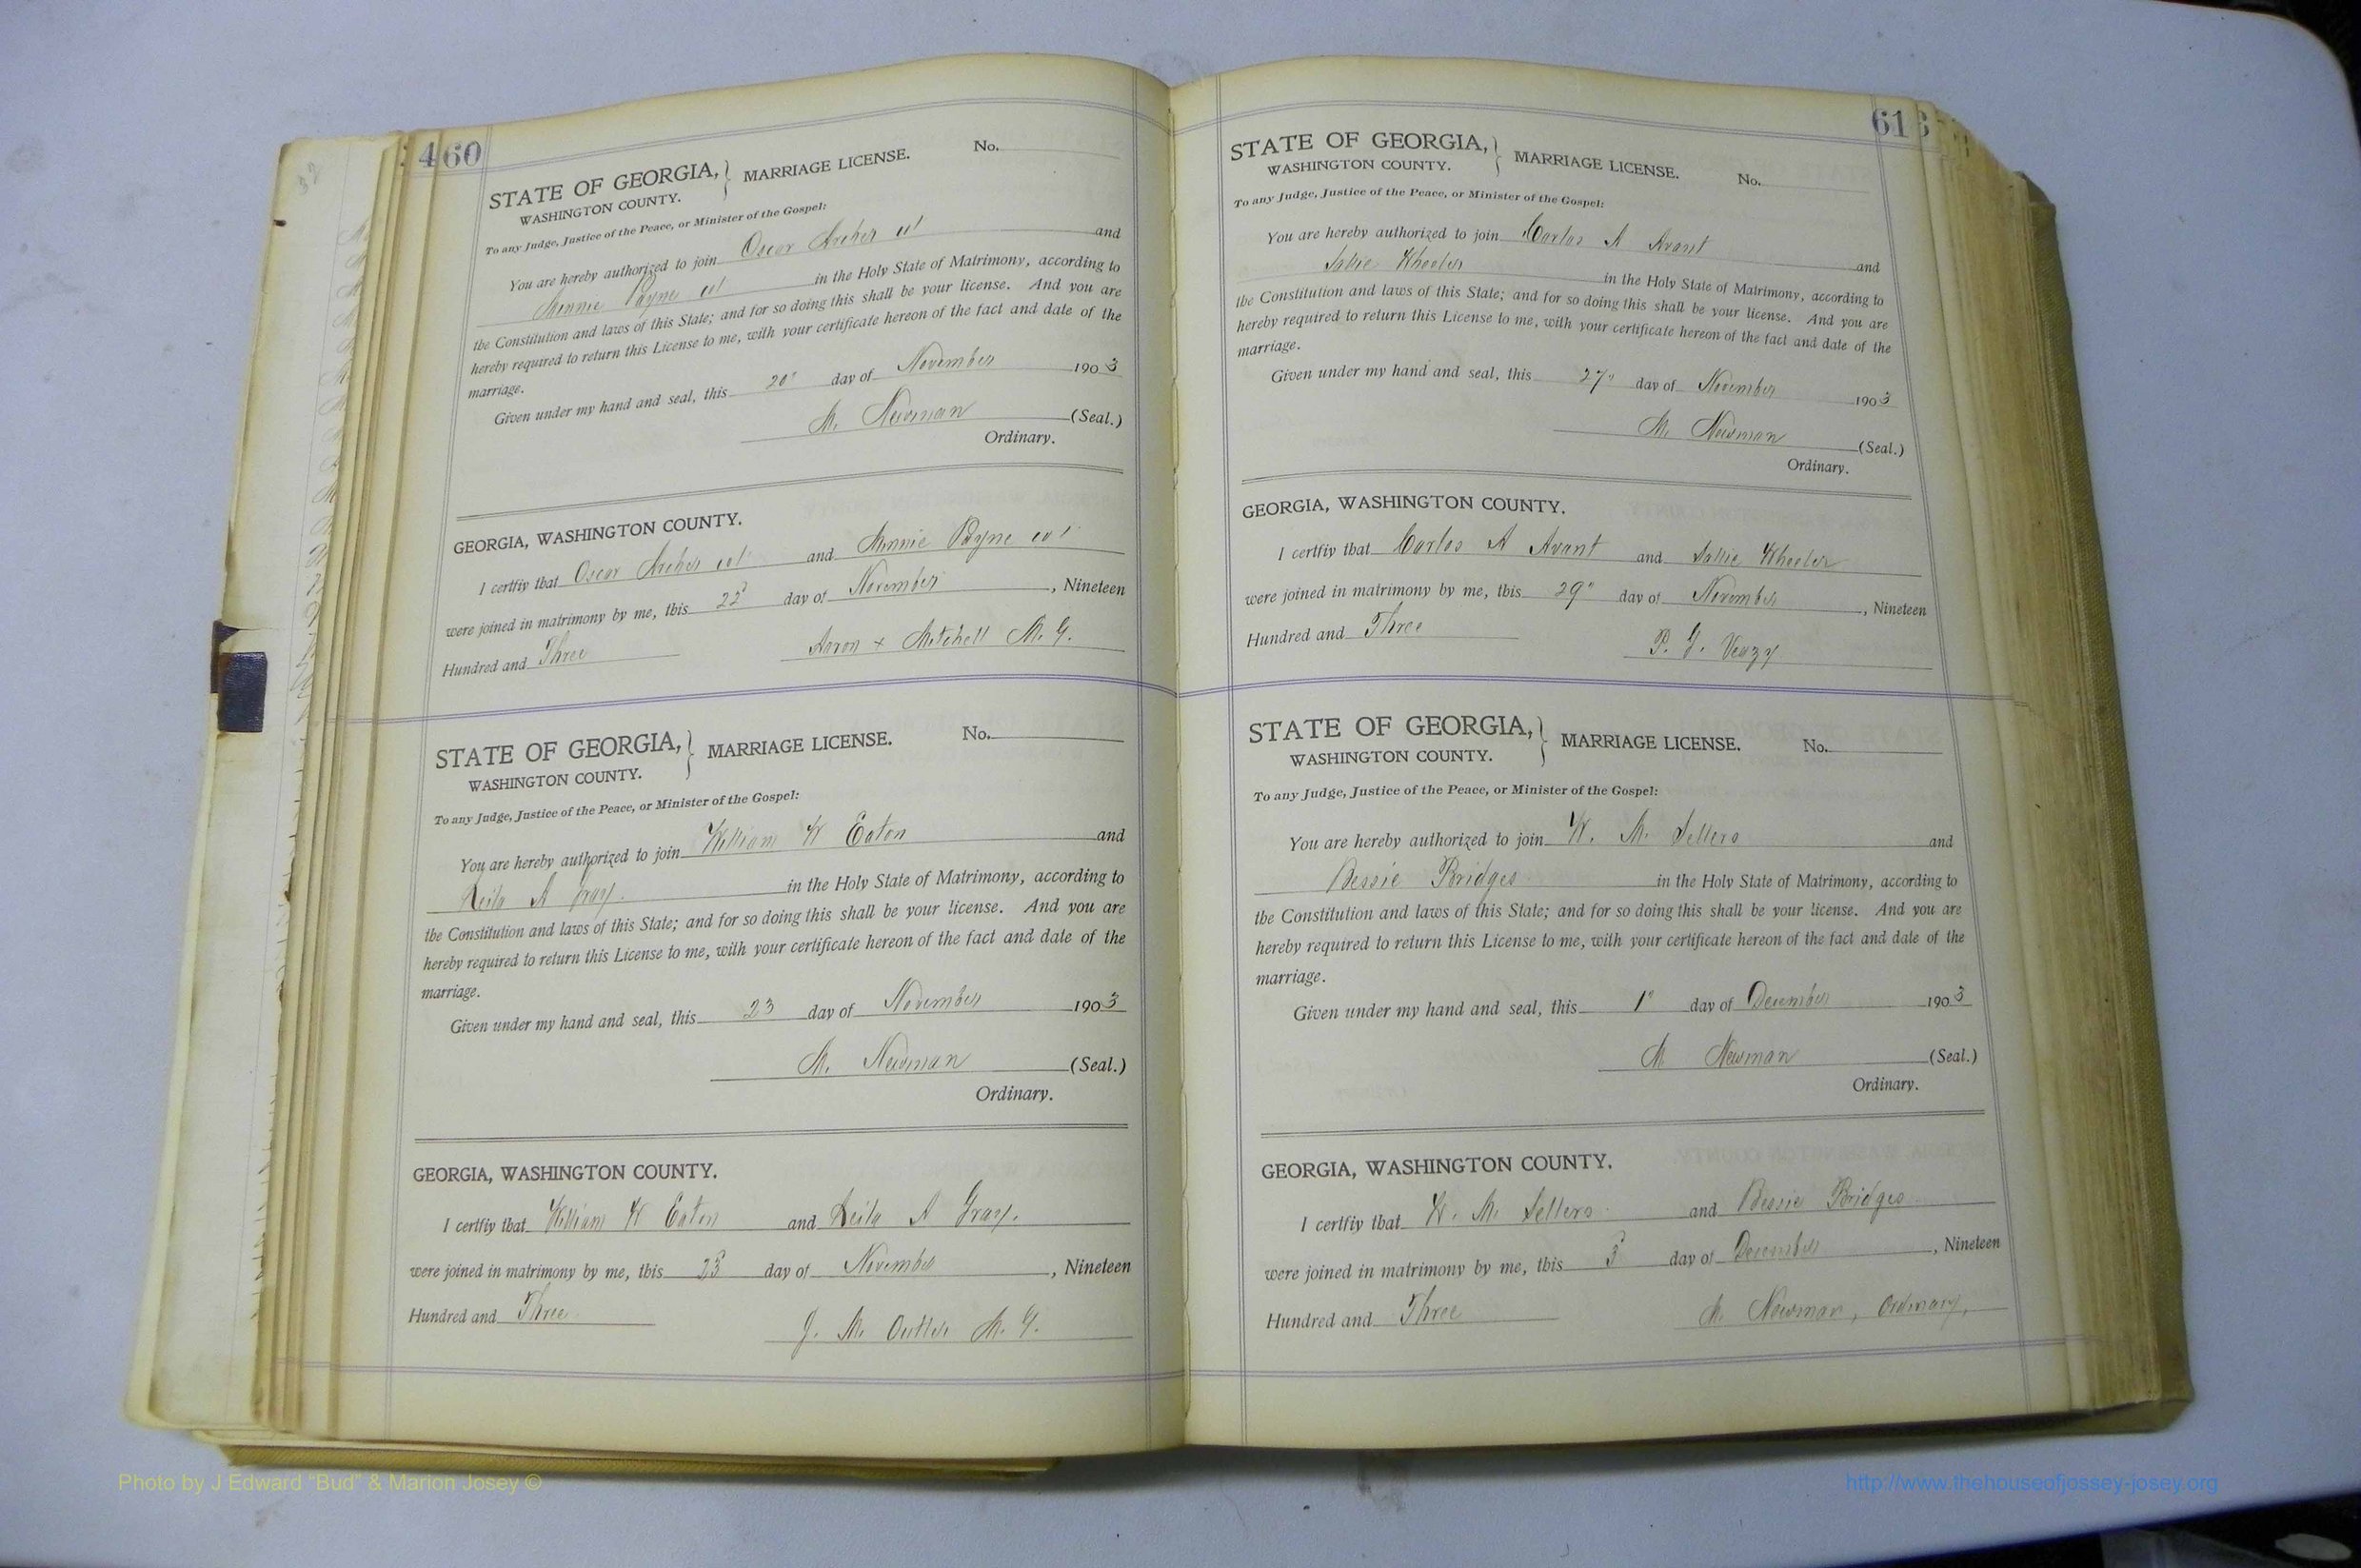 460
STATE OF GEORGIA, } MARRIAGE LICENSE. No.
WASHINGTON COUNTY.
To any Judge, Justice of the Peace, or Minister of the Gospel:
You are hereby authorized to join Oscar Archer col and
Minnie Payne col in the Holy State of Matrimony, according to
the Constitution and laws of this State; and for so doing this shall be your license. And you are
hereby required to return this License to me, with your certificate hereon of the fact and date of the
marriage.
Given under my hand and seal, this 20" day of November 1903
M. Newman (Seal.)
Ordinary.
GEORGIA, WASHINGTON COUNTY.
I certfiy that Oscar Archer col and Minnie Payne col
were joined in matrimony by me, this 22 day of November, Nineteen
Hundred and Three Aaron x Mitchell M. G.
STATE OF GEORGIA, } MARRIAGE LICENSE. No.
WASHINGTON COUNTY.
To any Judge, Justice of the Peace, or Minister of the Gospel:
You are hereby authorized to join William W Eaton and
Leila A Gray. in the Holy State of Matrimony, according to
the Constitution and laws of this State; and for so doing this shall be your license. And you are
hereby required to return this License to me, with your certificate hereon of the fact and date of the
marriage.
Given under my hand and seal, this 23 day of November 1903
M. Newman (Seal.)
Ordinary.
GEORGIA, WASHINGTON COUNTY.
I certfiy that William W Eaton and Leila A Gray.
were joined in matrimony by me, this 23 day of November, Nineteen
Hundred and Three J. M. Outler M. G.
613
STATE OF GEORGIA, } MARRIAGE LICENSE. No.
WASHINGTON COUNTY.
To any Judge, Justice of the Peace, or Minister of the Gospel:
You are hereby authorized to join Carlos A Avant and
Sallie Wheeler in the Holy State of Matrimony, according to
the Constitution and laws of this State; and for so doing this shall be your license. And you are
hereby required to return this License to me, with your certificate hereon of the fact and date of the
marriage.
Given under my hand and seal, this 27" day of November 1903
M. Newman (Seal.)
Ordinary.
GEORGIA, WASHINGTON COUNTY.
I certfiy that Carlos A Avant and Sallie Wheeler
were joined in matrimony by me, this 29" day of November, Nineteen
Hundred and Three P. G. Veazy
STATE OF GEORGIA, } MARRIAGE LICENSE. No.
WASHINGTON COUNTY.
To any Judge, Justice of the Peace, or Minister of the Gospel:
You are hereby authorized to join W. M. Sellers and
Bessie Bridges in the Holy State of Matrimony, according to
the Constitution and laws of this State; and for so doing this shall be your license. And you are
hereby required to return this License to me, with your certificate hereon of the fact and date of the
marriage.
Given under my hand and seal, this 1" day of December 1903
M Newman (Seal.)
Ordinary.
GEORGIA, WASHINGTON COUNTY.
I certfiy that W. M. Sellers and Bessie Bridges
were joined in matrimony by me, this 3 day of December, Nineteen
Hundred and Three M. Newman, Ordinary.
Photo by J Edward "Bud" & Marion Josey ©
http://www.thehouseofjossey-josey.org